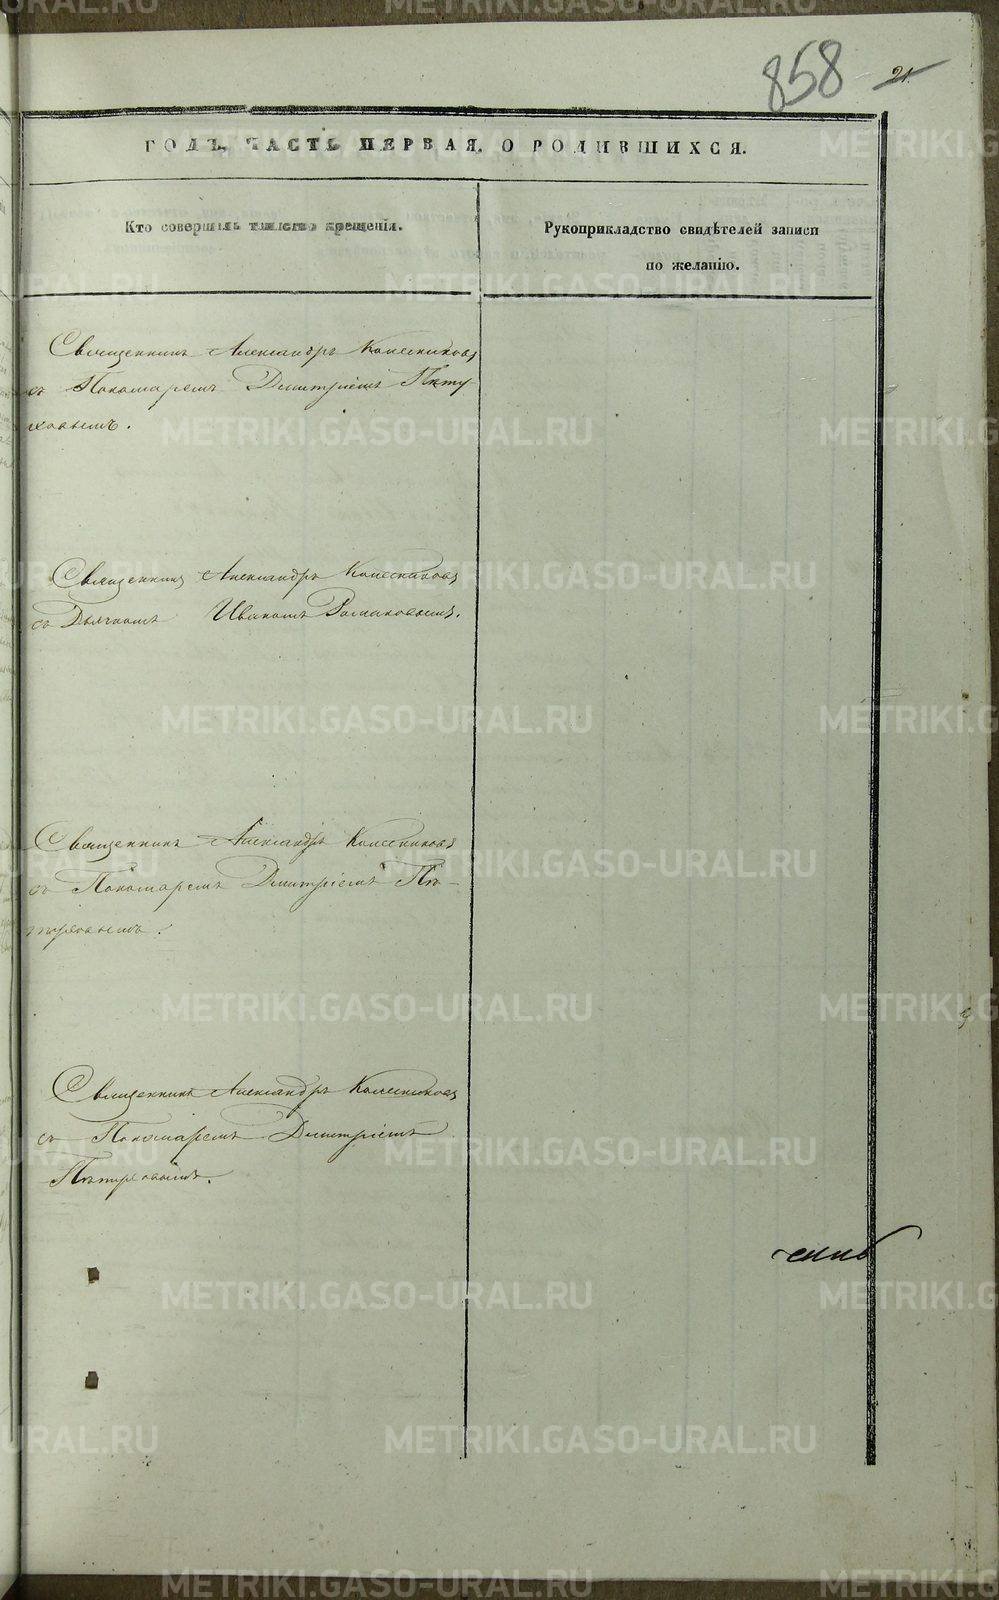 858 21
ГОДЪ, ЧАСТЬ ПЕРВАЯ, О РОДИВШИХСЯ.
Кто совершилъ таинство крещенія.
Рукоприкладство свидѣтелей записи
по желанію.
Священникъ Александръ Колесниковъ
съ Пономаремъ Димитріемъ Пѣту
ховымъ.
Священникъ Александръ Колесниковъ
съ Дьячкомъ Иваномъ Романовымъ.
Священникъ Александръ Колесниковъ
съ Пономаремъ Димитріемъ Пѣ-
туховымъ.
Священникъ Александръ Колесниковъ
съ Пономаремъ Димитріемъ
Пѣтуховымъ.
METRIKI.GASO-URAL.RU